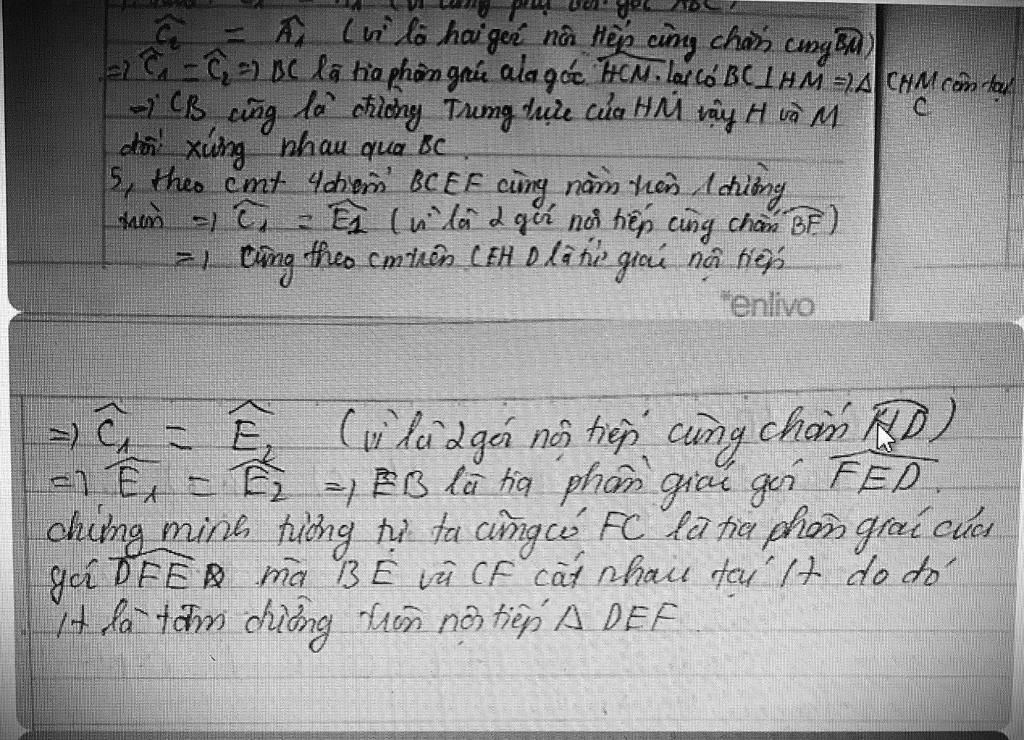 Ĉ₂ = Â₁ (vì là hai góc nội tiếp cùng chắn cung BM)
=> Ĉ₁ = Ĉ₂ => BC là tia phân giác của góc HCM. lại có BC⊥HM => Δ CHM cân tại C
=> CB cũng là đường Trung trực của HM vậy H và M
đối xứng nhau qua BC
5, theo cmt 4 điểm BCEF cùng nằm trên 1 đường
tròn => Ĉ₁ = Ê₁ (vì là 2 góc nội tiếp cùng chắn BF)
=> Cũng theo cm trên CEHD là tứ giác nội tiếp
enlivo
=> Ĉ₁ = Ê₂ (vì là 2 góc nội tiếp cùng chắn HD)
=> Ê₁ = Ê₂ => EB là tia phân giác góc FED.
chứng minh tương tự ta cũng có FC là tia phân giác của
góc DFE mà BE và CF cắt nhau tại H do đó
H là tâm đường tròn nội tiếp Δ DEF